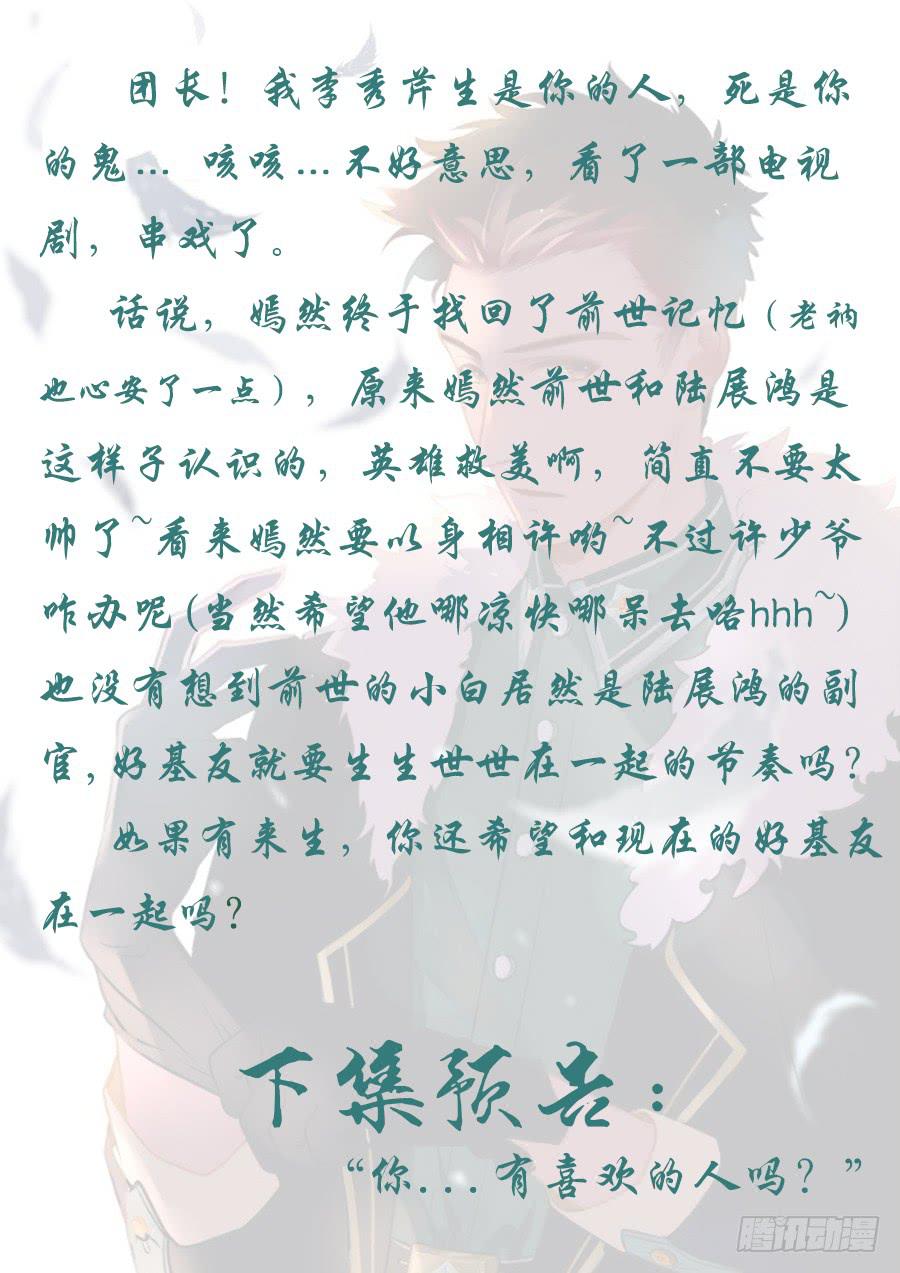 团长！我李秀芹生是你的人，死是你
的鬼… 咳咳…不好意思，看了一部电视
剧，串戏了。
话说，嫣然终于找回了前世记忆（老衲
也心安了一点），原来嫣然前世和陆展鸿是
这样子认识的，英雄救美啊，简直不要太
帅了~看来嫣然要以身相许哟~不过许少爷
咋办呢(当然希望他哪凉快哪呆去咯hhh~)
也没有想到前世的小白居然是陆展鸿的副
官,好基友就要生生世世在一起的节奏吗？
如果有来生，你还希望和现在的好基友
在一起吗？
下集预告：
“你...有喜欢的人吗？”
腾讯动漫